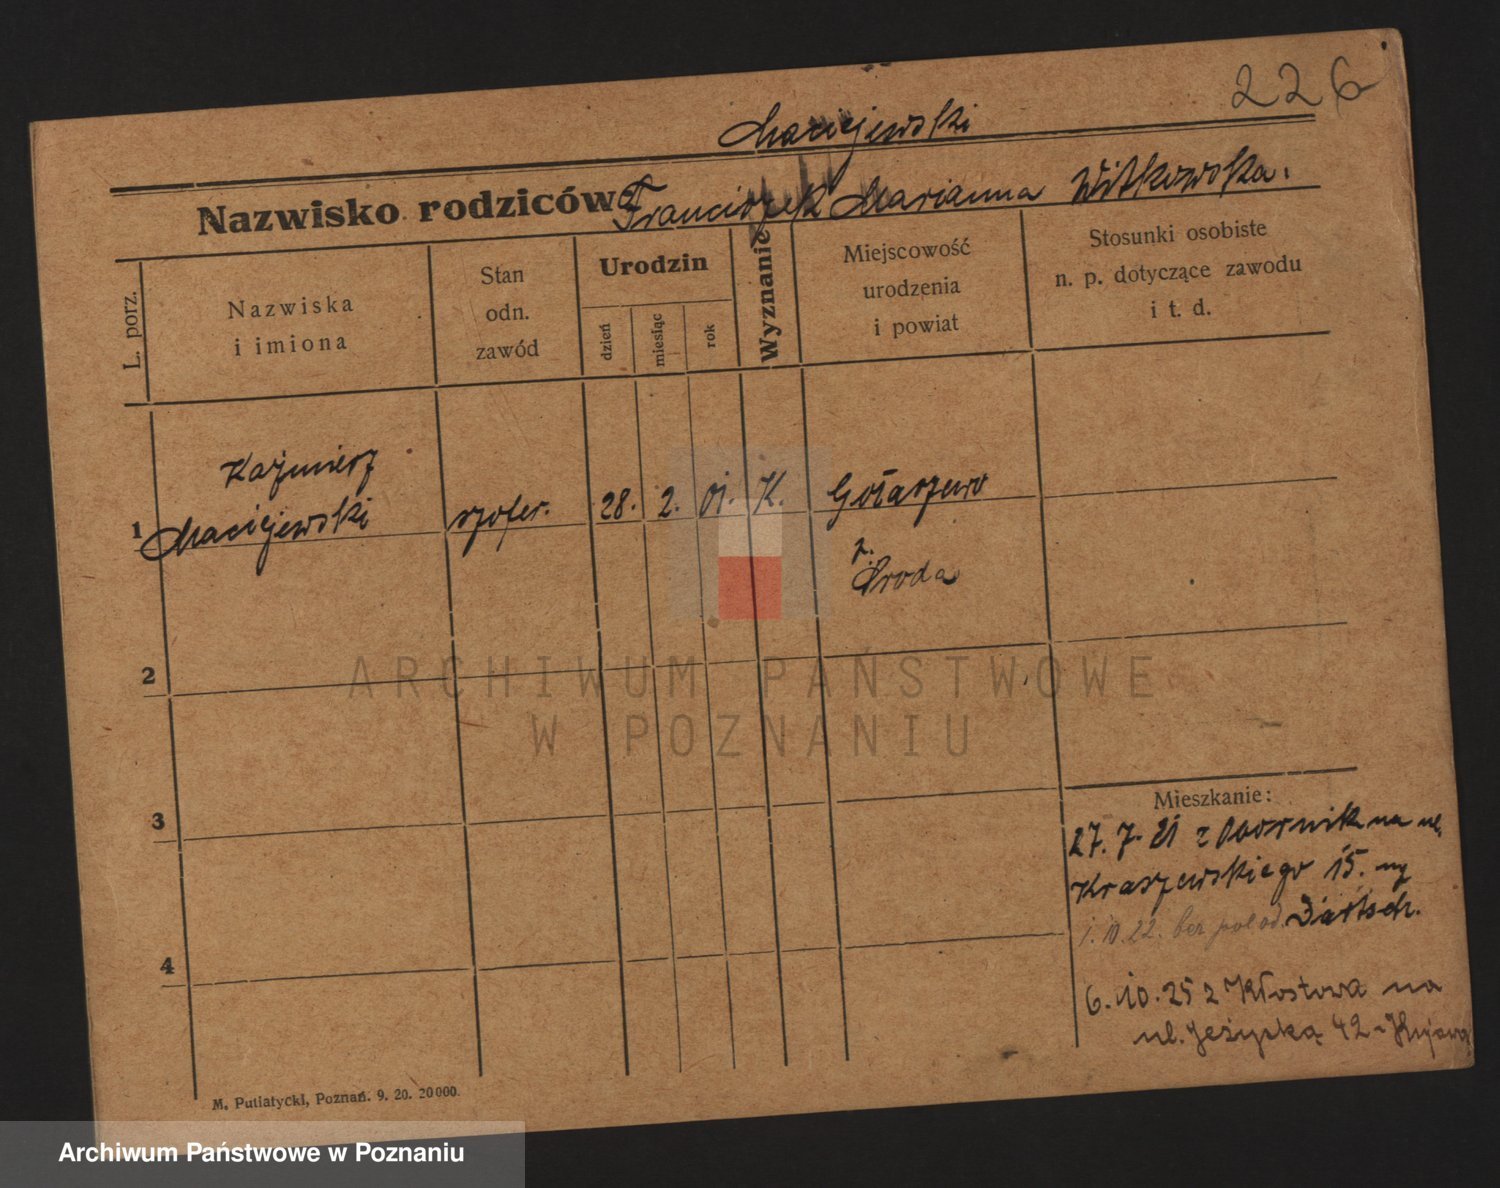 226
Maciejewski
Nazwisko rodziców: Franciszek Marianna Witkowska.
L. porz.
Nazwiska
i imiona
Stan
odn.
zawód
Urodzin
dzień
miesiąc
rok
Wyznanie
Miejscowość
urodzenia
i powiat
Stosunki osobiste
n. p. dotyczące zawodu
i t. d.
Kazimierz
1 Maciejewski szofer. 28. 2. 01. K. Gołaszewo
p.
Środa
2
ARCHIWUM PAŃSTWOWE
W POZNANIU
3
4
Mieszkanie:
27. 7. 21 z Obornik na ul.
Kraszewskiego 15.
1. 10. 22. bez pol od.
6. 10. 25 z Kłostowa na
ul. Jeżycką 42 -
M. Putiatycki, Poznań. 9. 20. 20000.
Archiwum Państwowe w Poznaniu